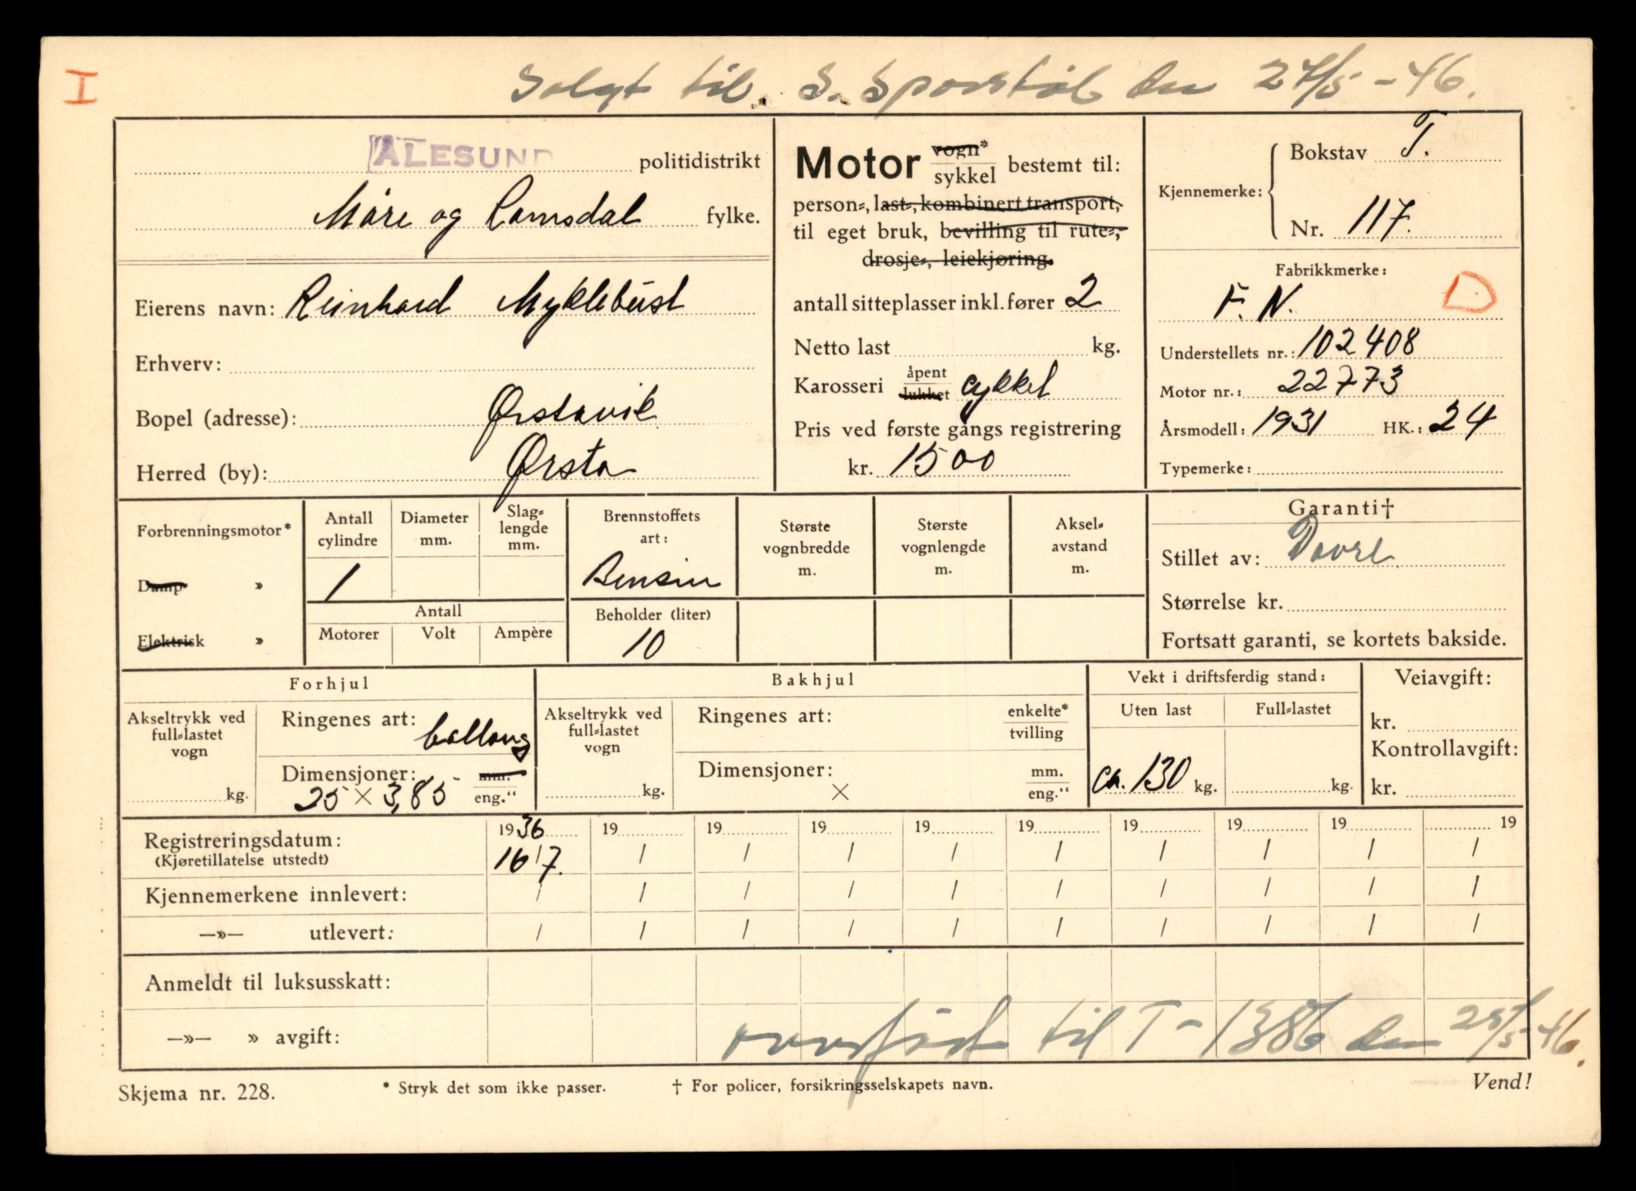 I
Solgt til. S. Sporstøl den 24/5 - 46.
ÅLESUND politidistrikt
Møre og Romsdal fylke.
Eierens navn: Reinhard Myklebust
Erhverv:
Bopel (adresse): Ørstavik
Herred (by): Ørsta
Motor vogn* sykkel bestemt til:
person-, last-, kombinert transport,
til eget bruk, bevilling til rute-,
drosje-, leiekjøring.
antall sitteplasser inkl. fører 2
Netto last kg.
Karosseri åpent lukket cykkel
Pris ved første gangs registrering
kr. 1500
Kjennemerke: Bokstav T.
Nr. 117.
Fabrikkmerke:
F. N. D
Understellets nr.: 102408
Motor nr.: 22773
Årsmodell: 1931 HK.: 24
Typemerke:
Forbrenningsmotor*
Damp »
Elektrisk »
Antall cylindre
1
Diameter mm.
Slaglengde mm.
Antall
Motorer Volt Ampère
Brennstoffets art:
Bensin
Beholder (liter)
10
Største vognbredde m.
Største vognlengde m.
Akselavstand m.
Garanti†
Stillet av: Dovre
Størrelse kr.
Fortsatt garanti, se kortets bakside.
Forhjul
Akseltrykk ved full-lastet vogn
kg.
Ringenes art: ballong
Dimensjoner: 25 × 3,85 mm. eng."
Bakhjul
Akseltrykk ved full-lastet vogn
kg.
Ringenes art: enkelte* tvilling
Dimensjoner: × mm. eng."
Vekt i driftsferdig stand:
Uten last Full-lastet
ca. 130 kg. kg.
Veiavgift:
kr.
Kontrollavgift:
kr.
1936 19 19 19 19 19 19 19 19 19
Registreringsdatum:
(Kjøretillatelse utstedt)
16/7. / / / / / / / / /
Kjennemerkene innlevert: / / / / / / / / / /
—»— utlevert: / / / / / / / / / /
Anmeldt til luksusskatt:
—»— » avgift:
overført til T - 1386 den 28/5 - 46.
Skjema nr. 228. * Stryk det som ikke passer. † For policer, forsikringsselskapets navn. Vend!